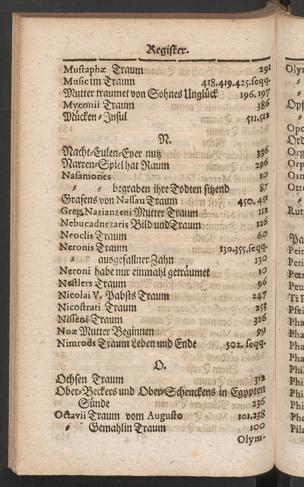 Register.
Mustaphæ Traum 291
Music im Traum 418.419.425.seqq.
Mutter traumet von Sohnes Unglück 196.197
Myconii Traum 386
Mücken-Insul 511.512
N.
Nacht-Eulen-Eyer nutz 336
Narren-Spiel hat Raum 296
Nasamones 10
" " begraben ihre Todten sitzend 87
Grafens von Nassau Traum 450.451
Greg. Nazianzeni Mutter Traum 112
Nebucadnezaris Bild und Traum 126
Neoclis Traum 60
Neronis Traum 130.355.seqq.
" ausgefallner Zahn 130
Neroni habe nur einmahl geträumet 10
Nestlers Traum 96
Nicolai V. Pabsts Traum 247
Nicostrati Traum 253
Nisseni Traum 326
Noæ Mutter Beginnen 99
Nimrods Traum Leben und Ende 502. seqq.
O.
Ochsen Traum 312
Ober-Beckers und Ober-Schenckens in Egypten
Sünde 236
Octavii Traum vom Augusto 101.238
" Gemahlin Traum 100
Olym-